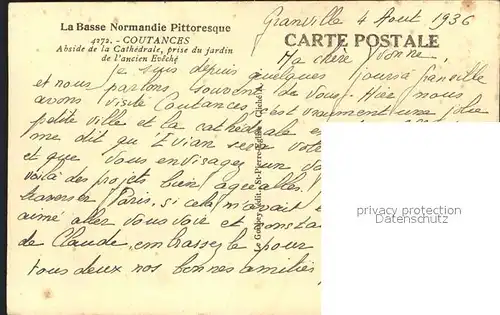 La Basse Normandie Pittoresque
4272. - COUTANCES
Abside de la Cathédrale, prise du jardin
de l'ancien Evêché
CARTE POSTALE
Granville 4 Aout 1936
Ma chère Yvonne,
Je suis depuis quelques jours à Granville
et nous parlons souvent de vous. Hier nous
avons visité Coutances, c'est vraiment une jolie
petite ville et la cathédrale
me dit qu'Evian sera
et que vous envisagez un
voilà des projets bien agréables.
traverser Paris, si cela m'avait
aimé aller vous voir et
de Claude, embrassez le pour
tous deux nos bonnes amitiés
Le Goubey, édit., St-Pierre-Eglise
privacy protection
Datenschutz